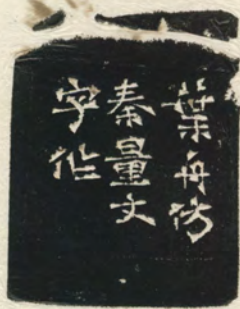 葉舟仿
秦量文
字作